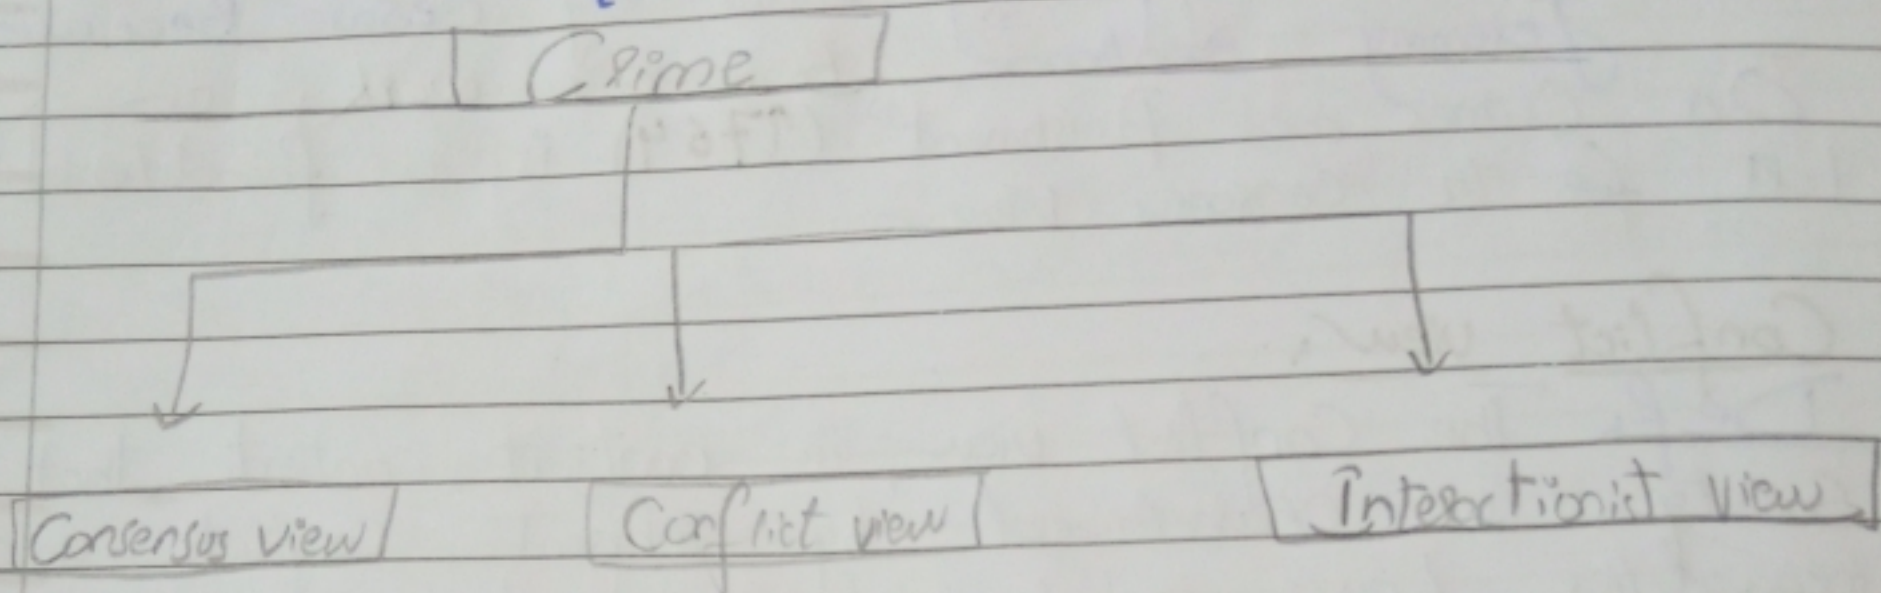 Crime
Consensus view
Conflict view
Interactionist view